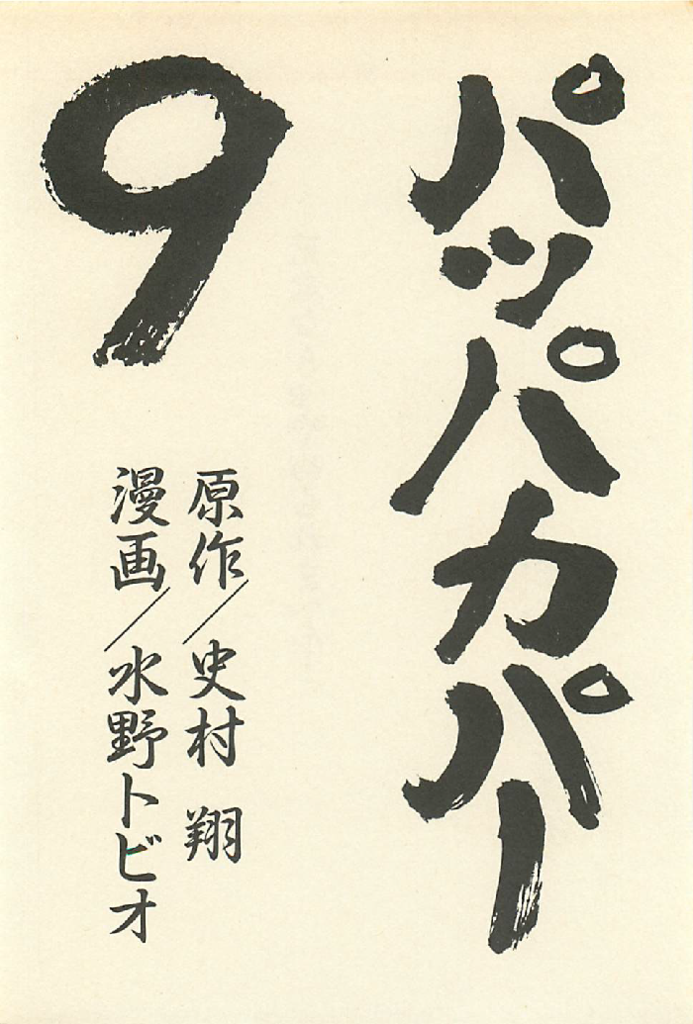 パッパカパー
9
原作/史村 翔
漫画/水野トビオ